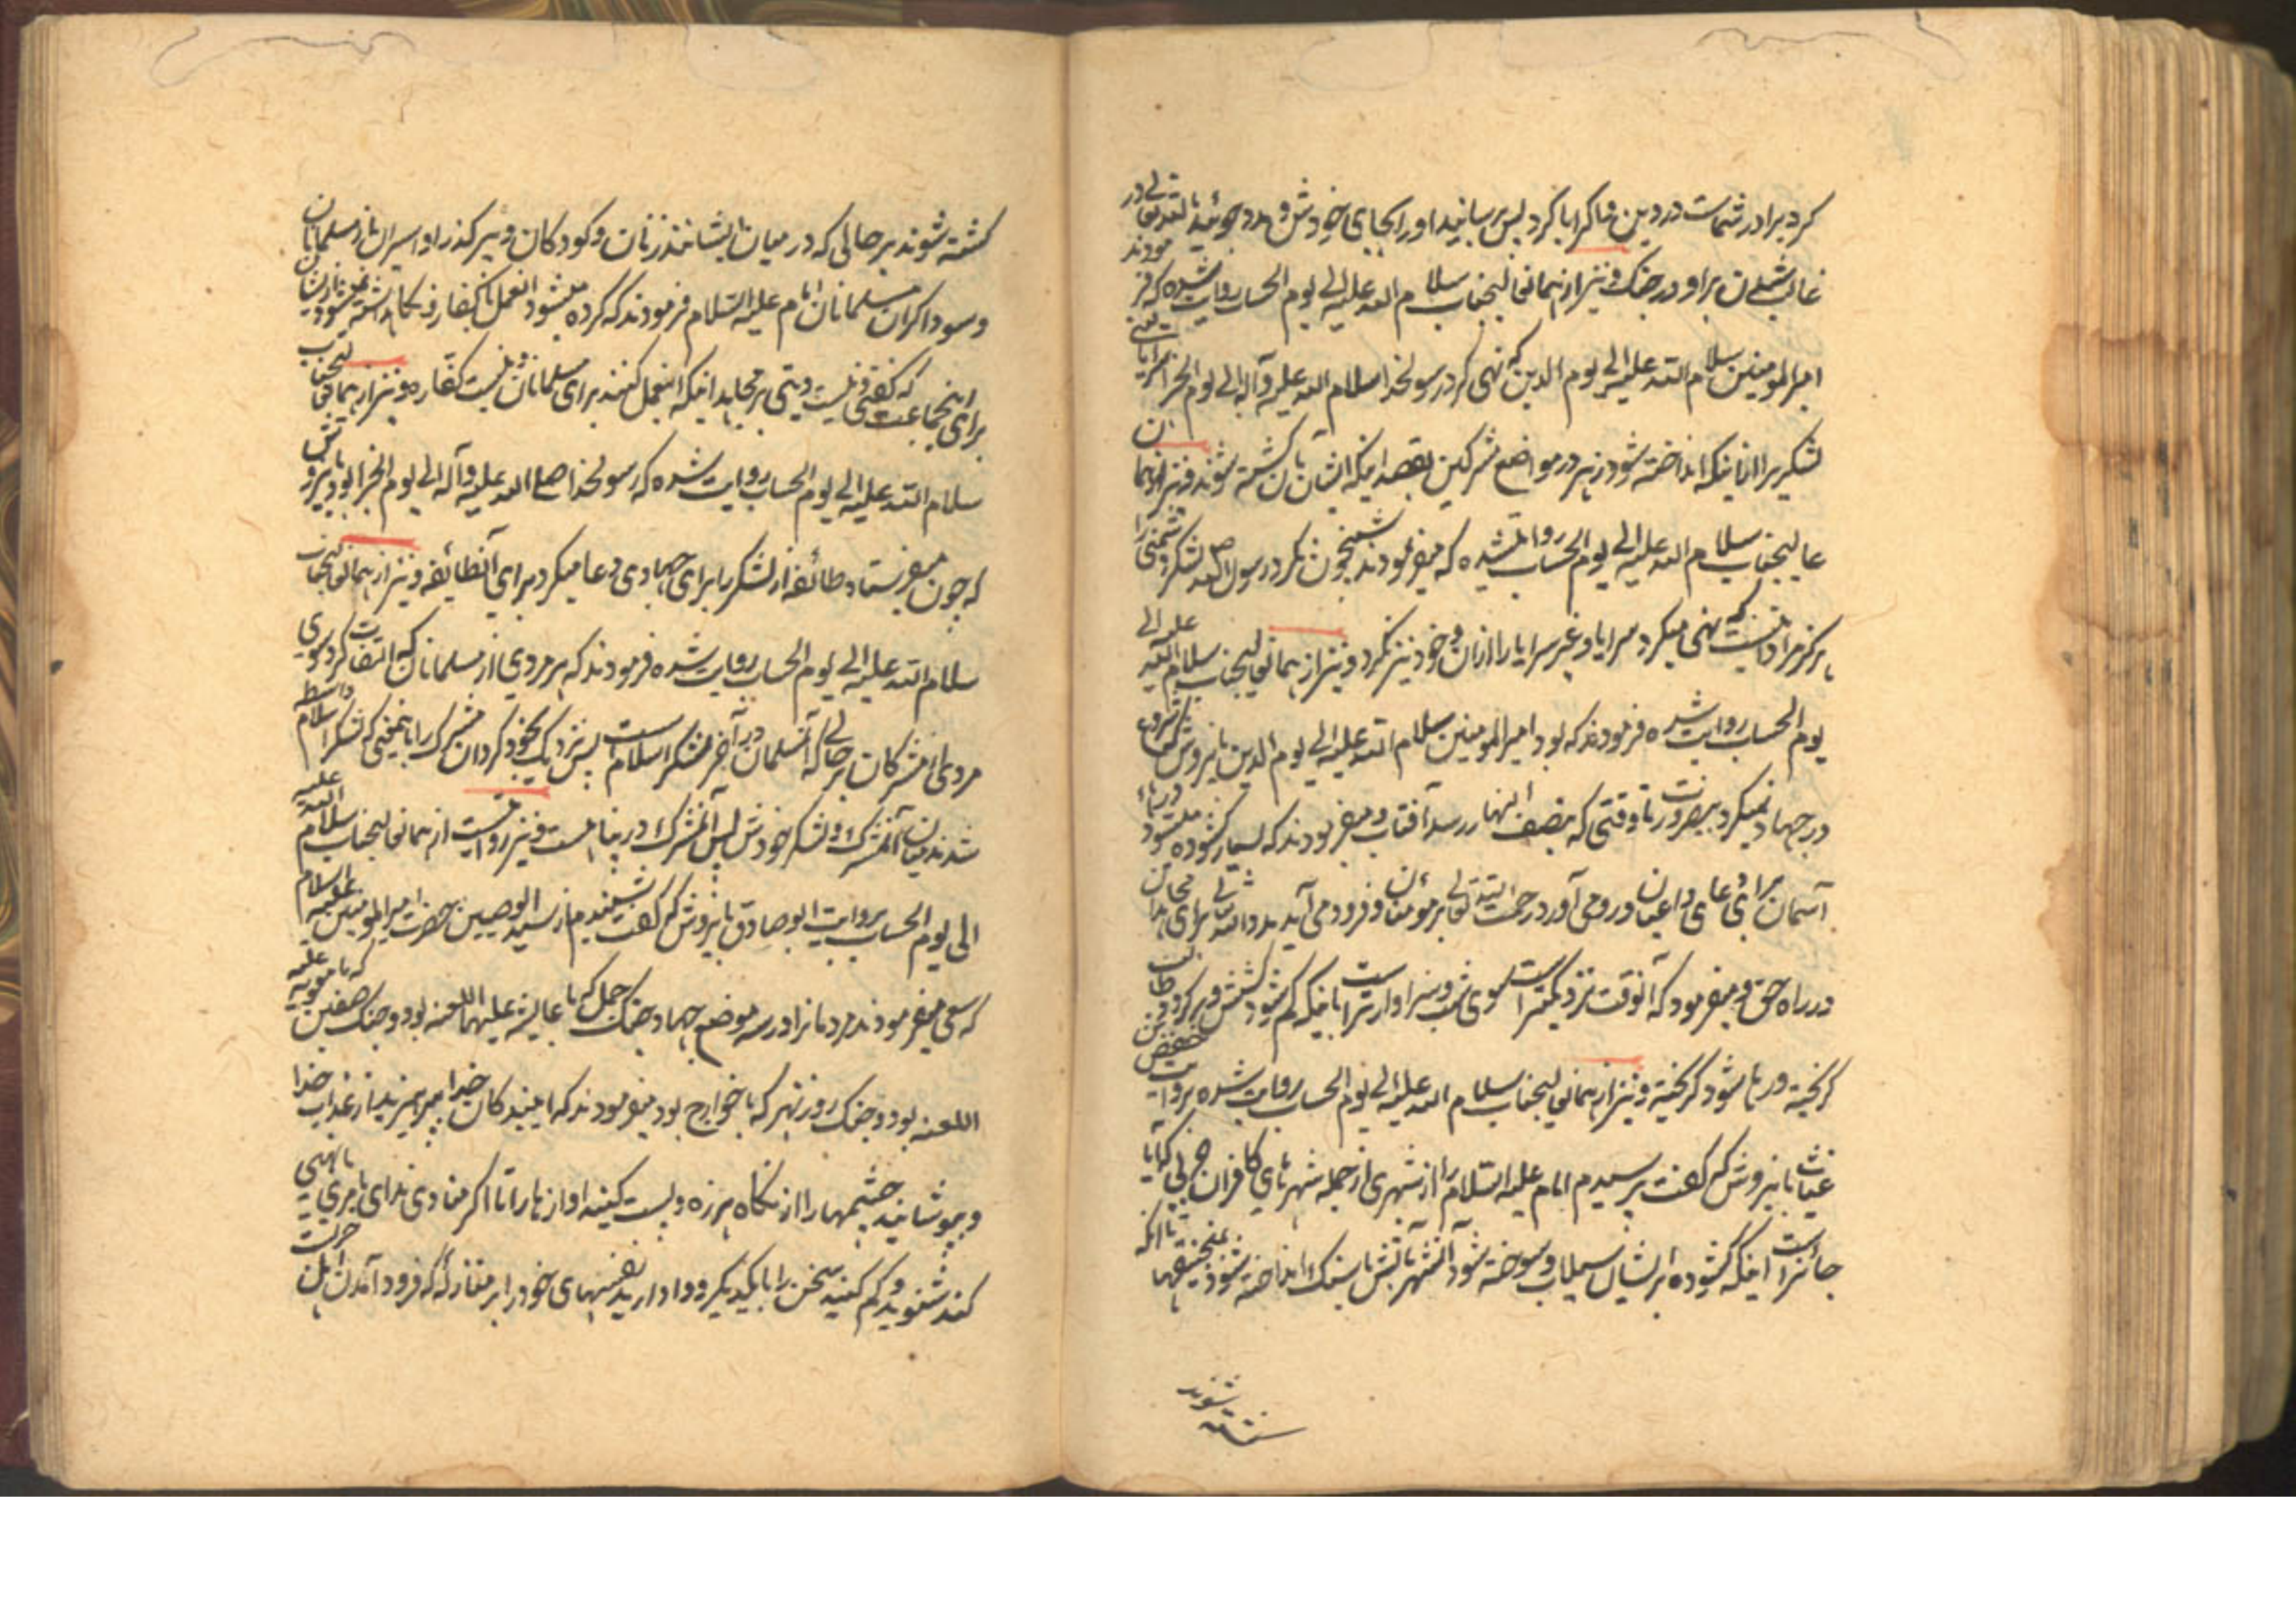 کرد برادر شماست در دین و اگر ابا کرد پس برسانید او را بجای خودش و مدد جوئید بالله تعالی در
غالب شدن بر او در جنگ و نیز از همانعالیجناب سلام الله علیه الی یوم الحساب روایت شده که فرمودند
امیر المومنین سلام الله علیه الی یوم الدین که نهی کرد رسولخدا سلام الله علیه وآله الی یوم الجزا سرایا یعنی
لشکریرا از اینکه انداخته شود زهر در مواضع مشرکین بقصد اینکه ایشان بآن کشته شوند و نیز از هما
عالیجناب سلام الله علیه الی یوم الحساب روایتشده که میفرمودند شبیخون نکرد رسول الله صلعم لشکر دشمنی را
هرگز نهی میکرد سرایا و غیر سرایا را از آن و خود نیز نکرد و نیز از همانعالیجناب سلام الله علیه الی
یوم الحساب روایت شده فرمودند که بود امیر المومنین سلام الله علیه الی یوم الدین باین روش که شروع
در جهاد نمیکرد بیضرورت تا وقتی که بنصف النهار رسد آفتاب و میفرمودند که بسیار گشوده میشود درهاء
آسمان برای دعای داعیان و رو می آورد رحمت الله تعالی بر مؤمنان و فرود می آید مدد الله تعالی برای مجاهدان
در راه حق و میفرمود که آنوقت نزدیکتر است بسوی شب و سزاوارتر است باینکه کم شود کشش و برگردد طالب
گریخته و رها شود گریخته و نیز از همانعالیجناب سلام الله علیه الی یوم الحساب روایت شده بروایت حفص بن
غیاث باین روش که گفت پرسیدم امام علیه السلام را از شهری از جمله شهرهای کافران حربی که آیا
جائز است اینکه گشوده بر ایشان سیلاب و سوخته شود آنشهر بآتش یا سنگ انداخته شود بمنجنیقها تا آنکه
کشته شوند
کشته شوند بر حالی که در میان ایشانند زنان و کودکان و پیر گذرا و اسیران از مسلمانان
و سوداگران مسلمانان امام علیه السلام فرمودند که کرده میشود اینعمل با کفار و نگاه داشته نمیشود
برای اینجماعت که گفتی و نیست دیتی بر مجاهد اینکه اینعمل کنند برای مسلمانان و نیست کفاره و نیز از همانعالیجناب
سلام الله علیه الی یوم الحساب روایت شده که رسولخدا صلی الله علیه وآله الی یوم الجزا بود باین روش
که چون میفرستاد طائفه از لشکر را برای جهادی دعا میکرد برای آنطائفه و نیز از همانعالیجناب
سلام الله علیه الی یوم الحساب روایت شده فرمودند که هر مردی از مسلمانان که التفات کرد بسوی
مردی از مشرکان بر حالی که آنمسلمان در آخر لشکر اسلامست پس نزدیک بخود گردان مشرک را باینمعنی که لشکر اسلام واسطه
شدند میان آنمشرک و لشکر خودش پس آنمشرک در پناهست و نیز روایتست از همانعالیجناب سلام الله علیه
الی یوم الحساب بروایت ابو صادق باین روش که گفت شنیدم از سید الوصیین حضرت امیر المومنین علیه السلام
که سعی میفرمودند مردمانرا در سه موضع جهاد جنگ جمل که با عایشه علیها اللعنه بود و جنگ صفین که با معویه علیه
اللعنه بود و جنگ روز نهر که با خوارج بود میفرمودند که ای بندکان خدا بپرهیزید از عذاب خدا
و بپوشانید چشمها را از نگاه هرزه و پست کنید آوازها را تا اگر منادی ندای بامری یا نهیی
کند شنوید و کم کنید سخن را بایکدیگر و وادارید نفسهای خود را بر منازله که فرود آمدن اهل حربست